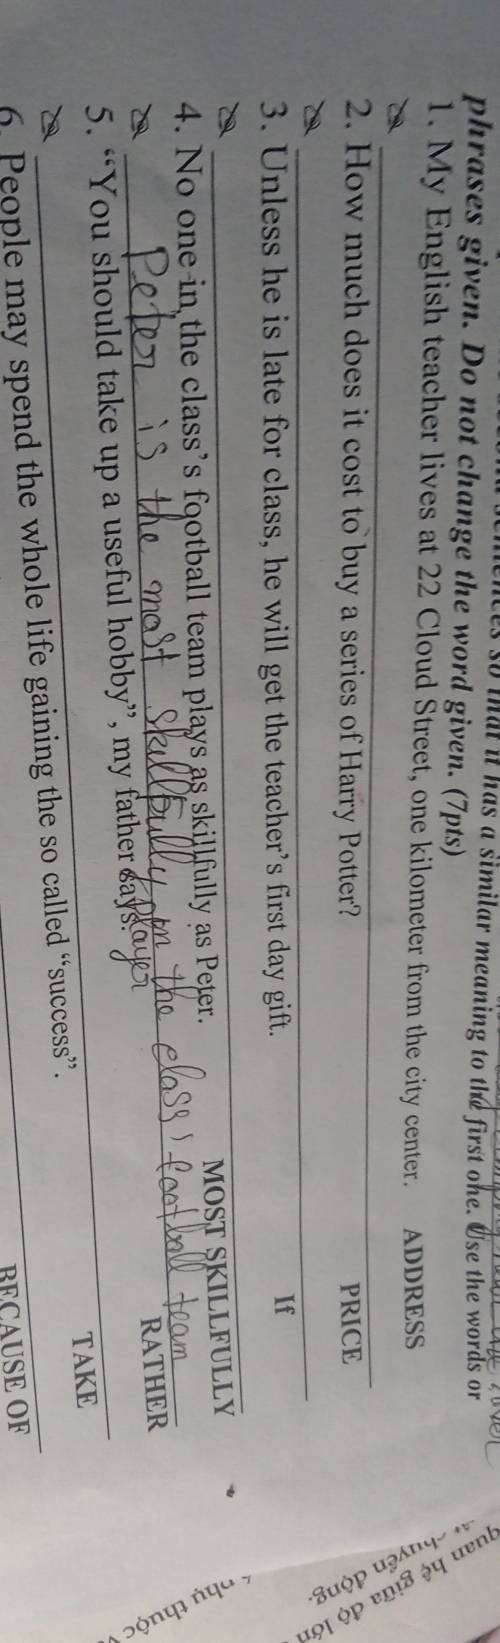 so that it has a similar meaning to the first one. Use the words or
phrases given. Do not change the word given. (7pts)
1. My English teacher lives at 22 Cloud Street, one kilometer from the city center. ADDRESS
2. How much does it cost to buy a series of Harry Potter? PRICE
3. Unless he is late for class, he will get the teacher's first day gift. If
4. No one in the class's football team plays as skillfully as Peter. MOST SKILLFULLY
Peter is the most skillfully player on the class's football team
RATHER
5. "You should take up a useful hobby", my father says. TAKE
6. People may spend the whole life gaining the so called "success". BECAUSE OF
quan hệ giữa độ lớn
chuyển động.
nhụ thuộc